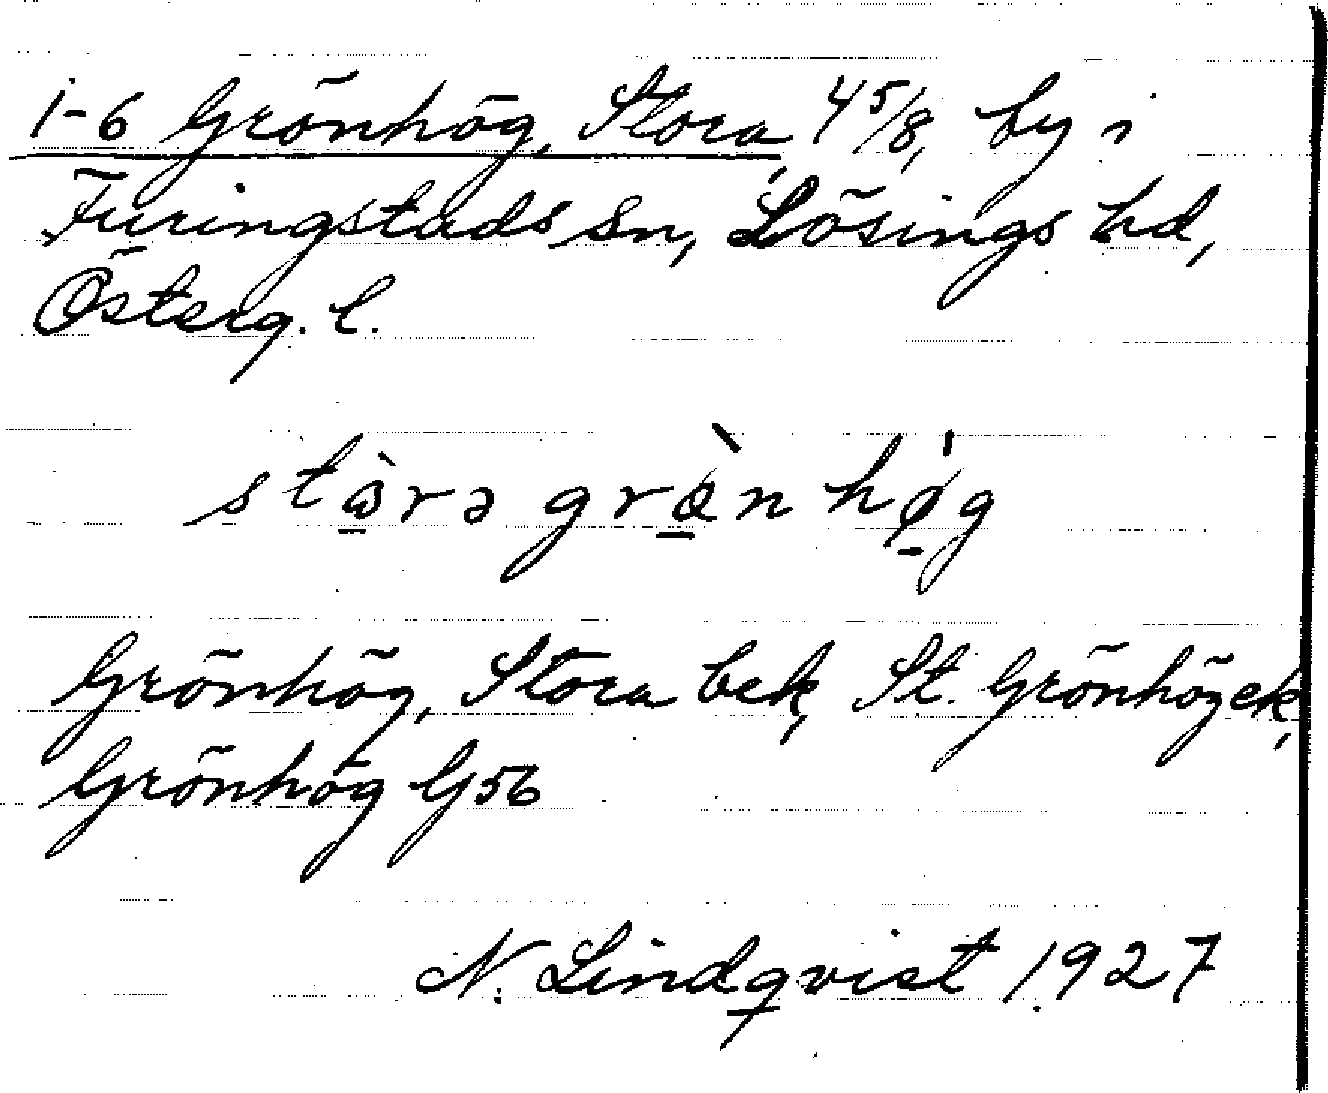 1-6 Grönhög, Stora, 4 5/8, by i
Furingstads sn, Lösings hd,
Österg. l.
stòrə grø̀nhǿg
Grönhög, Stora bek, St. Grönhög ek,
Grönhög G56
N. Lindqvist 1927